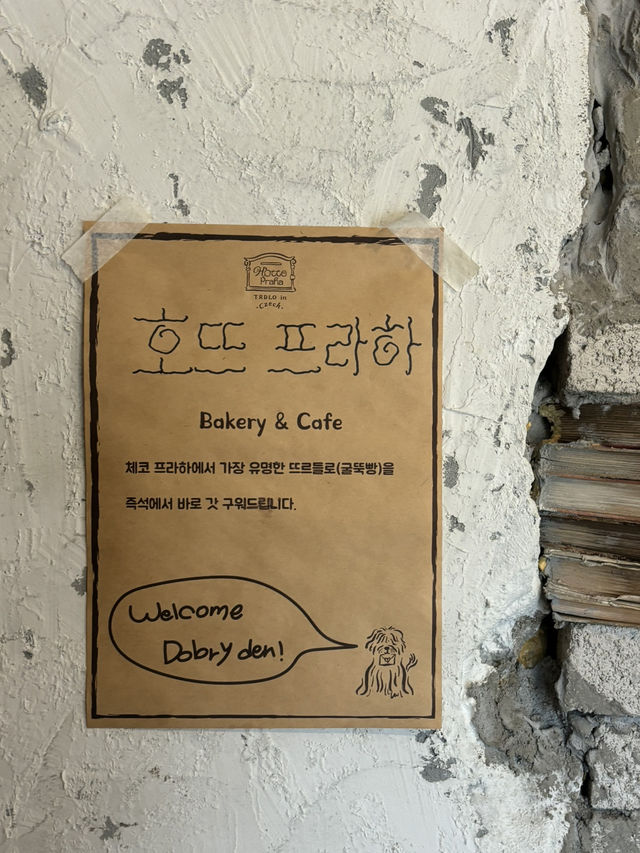 Hotto
Praha
TRDLO in
.Czech.
호떠 프라하
Bakery & Cafe
체코 프라하에서 가장 유명한 뜨르들로(굴뚝빵)을
즉석에서 바로 갓 구워드립니다.
Welcome
Dobry den!